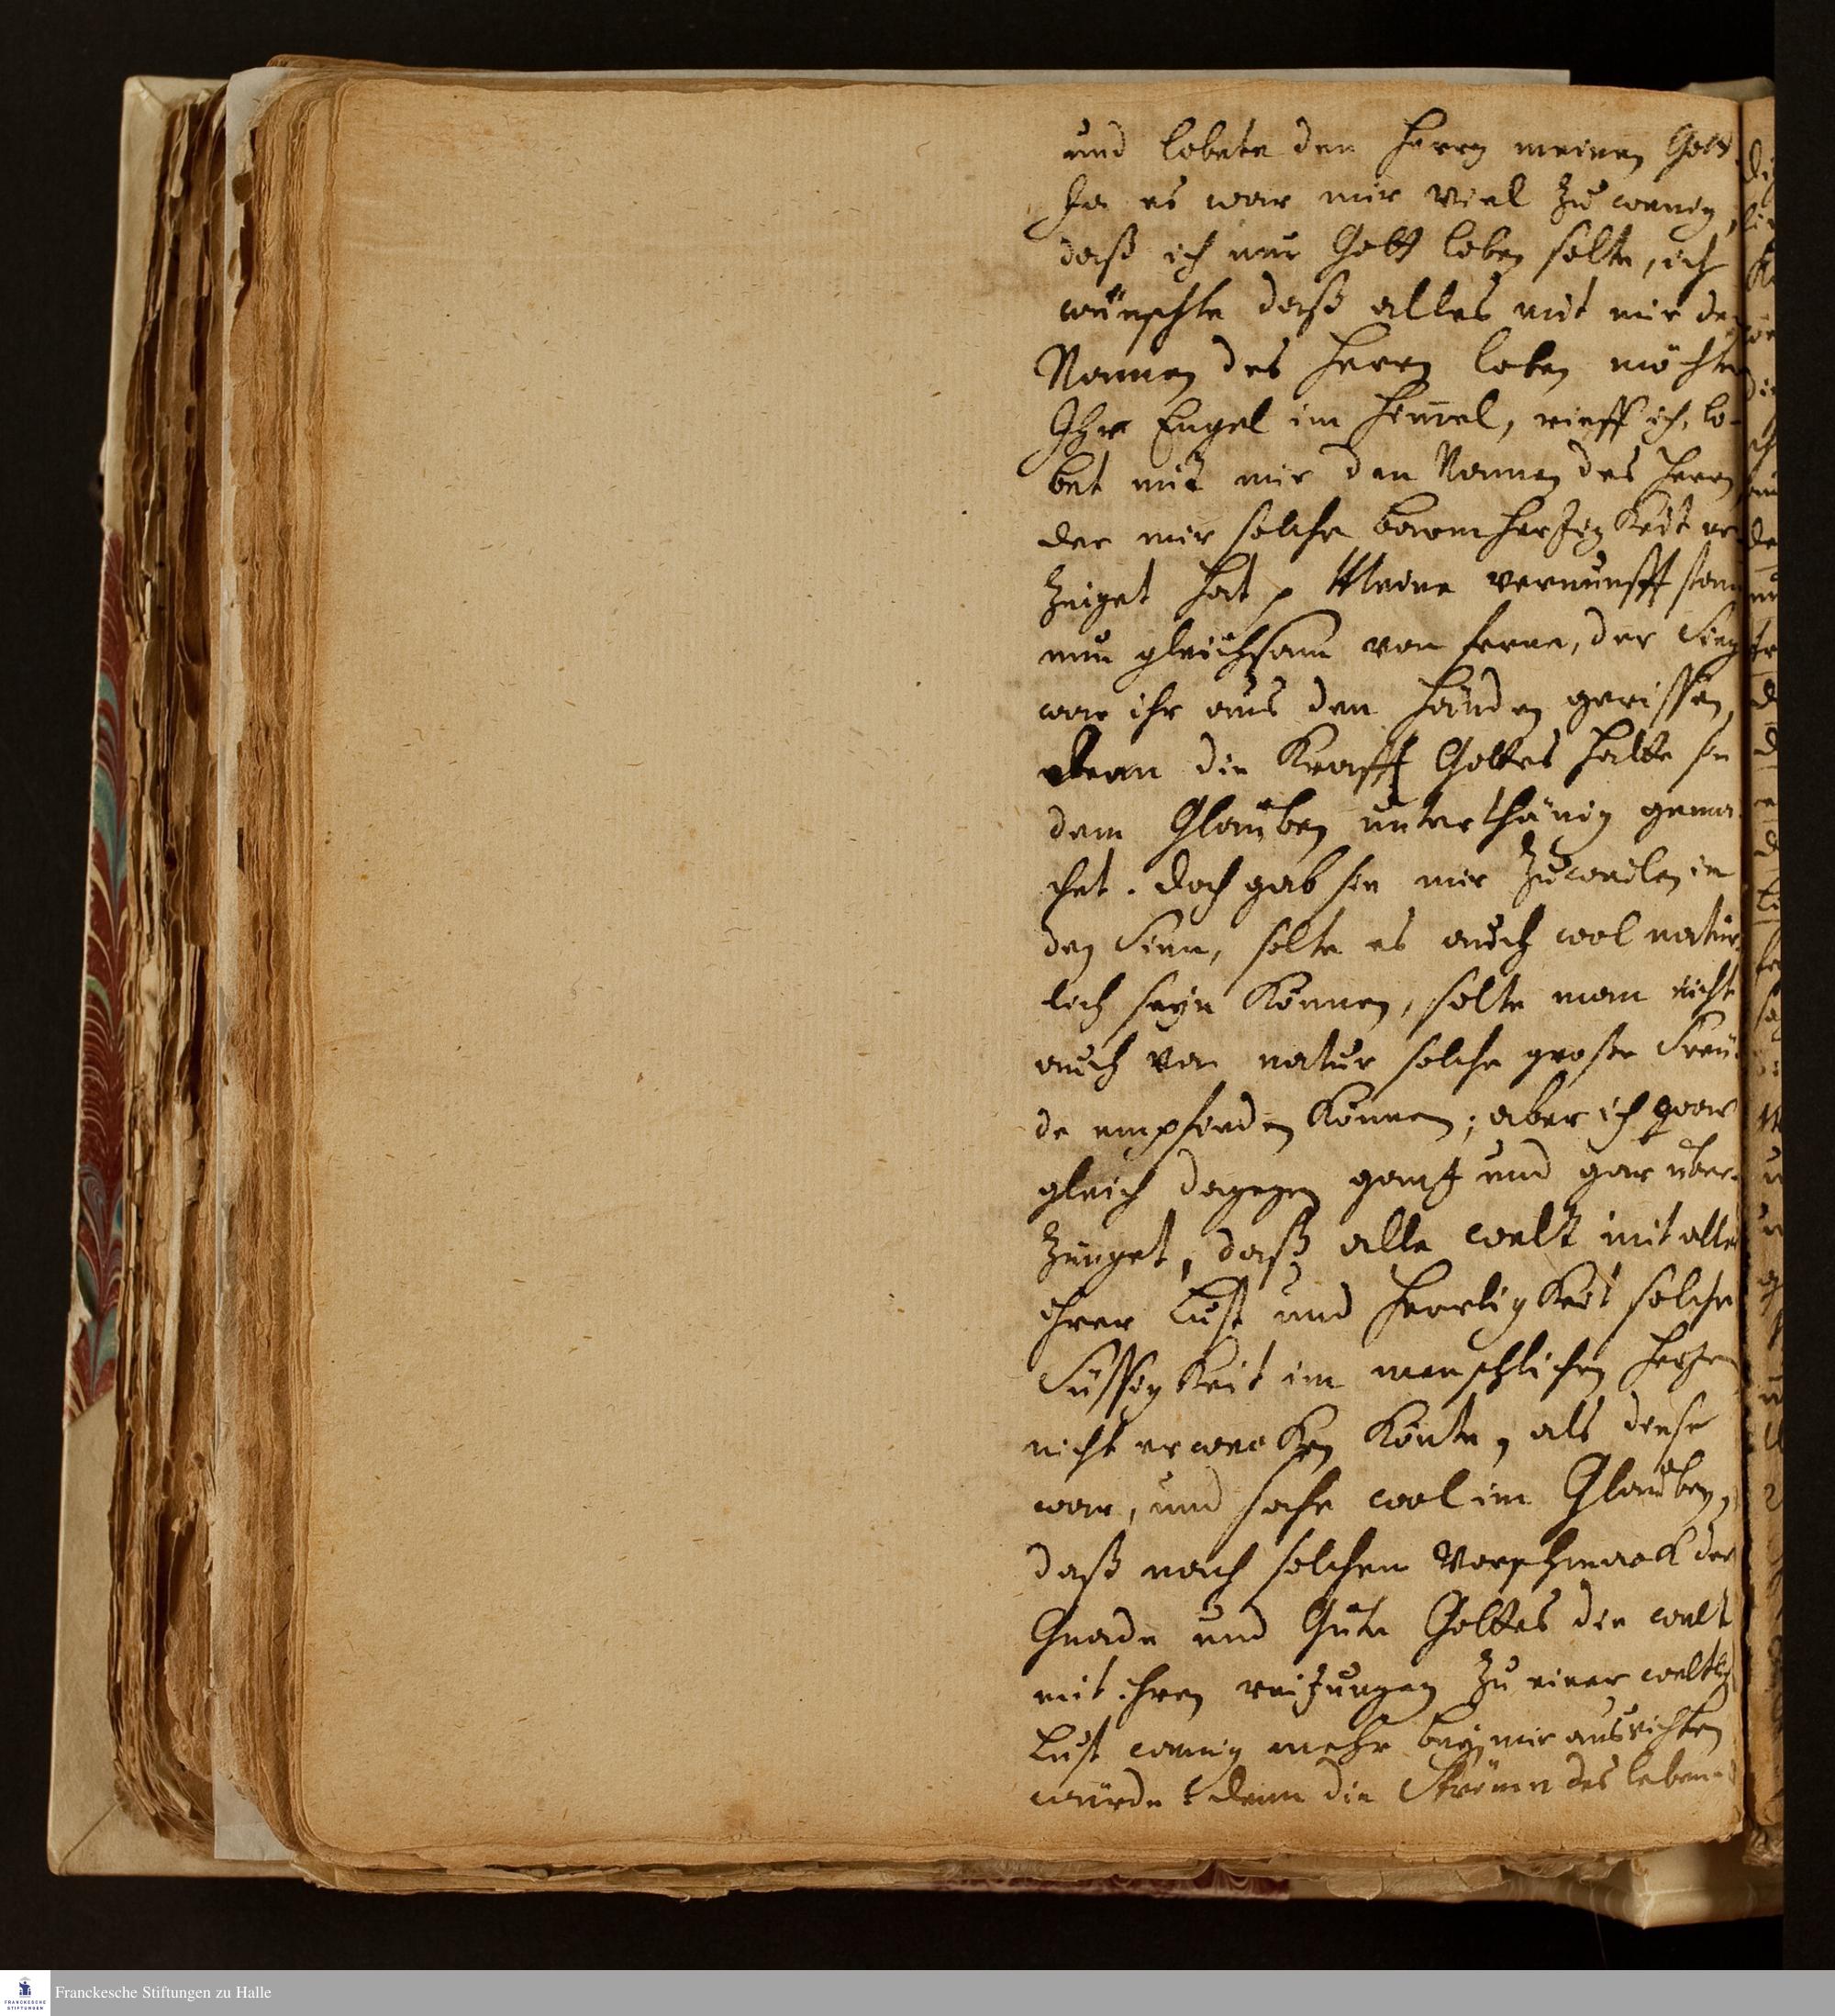 und lobete den Herrn meinen Gott.
Ja es war mir viel zu wenig,
daß ich nur Gott loben solte, ich
wünschte daß alles mit mir den
Namen des Herrn loben möchte
Ihr Engel im Him̄el, rieff ich, lo-
bet mit mir den Namen des Herrn
der mir solche barmhertzigkeit er-
zeiget hat p Meine vernunfft stand
nun gleichsam von ferne, der Sieg
war ihr aus den händen gerissen,
denn die Krafft Gottes hatte sie
dem Glauben unterthänig gema-
chet. doch gab sie mir zuweilen in
den Sinn, solte es auch wol natür-
lich seyn können, solte man nicht
auch von natur solche große Freu-
de empfinden können; aber ich war
gleich dagegen gantz und gar über-
zeuget, daß alle welt mit aller
ihrer Lust und Herrligkeit solche
Süssigkeit im menschlichen hertzen
nicht erwecken könte, als diese
war, und sahe wol im Glauben,
daß nach solchen Vorschmack der
Gnade und Güte Gottes die welt
mit ihren reitzungen zu einer weltlichen
Lust wenig mehr bey mir ausrichten
würde denn die Ströme des leben-
Franckesche Stiftungen zu Halle
FRANCKESCHE
STIFTUNGEN